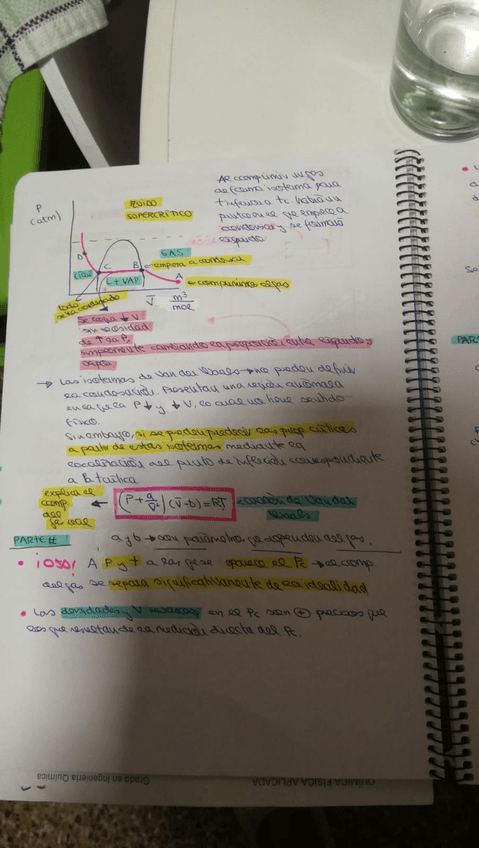 P
(atm)
FLUIDO
SUPERCRÍTICO
Al comprimir un gas
de forma isoterma para
T inferior a tc habrá un
punto en el que empieza a
condensar y se formará
líquido
GAS
D
C
B
A
empieza a condensar
L + VAP
todo
condensado
comprimimos el gas
V̄ m³/mol
Se logra ↓ V
sin necesidad
de ↑ la P,
simplemente cambiando la proporción entre líquido y
vapor
→ Las isotermas de Van der Waals → no pueden definir
la condensación. Presentan una región anómala
en la que la P↓ y ↓V, lo cual no tiene sentido
físico.
Sin embargo, sí se pueden predecir las prop. críticas
a partir de estas isotermas mediante la
localización del punto de inflexión correspondiente
a la T crítica
explica el
comp.
del
gas real
← (P + a/V̄²) (V̄ - b) = RT → ecuación de Van der
Waals
a y b → son parámetros que dependen del gas.
PARTE II
• ¡OJO! A P y T a las que se aparece el Pc → el comp.
del gas se separa significativamente de la idealidad
• Las densidades y V molares en el Pc son ⊕ precisos que
los que resultan de la medición directa del Pc.
PARTE
QUÍMICA FÍSICA APLICADA
Grado en Ingeniería Química